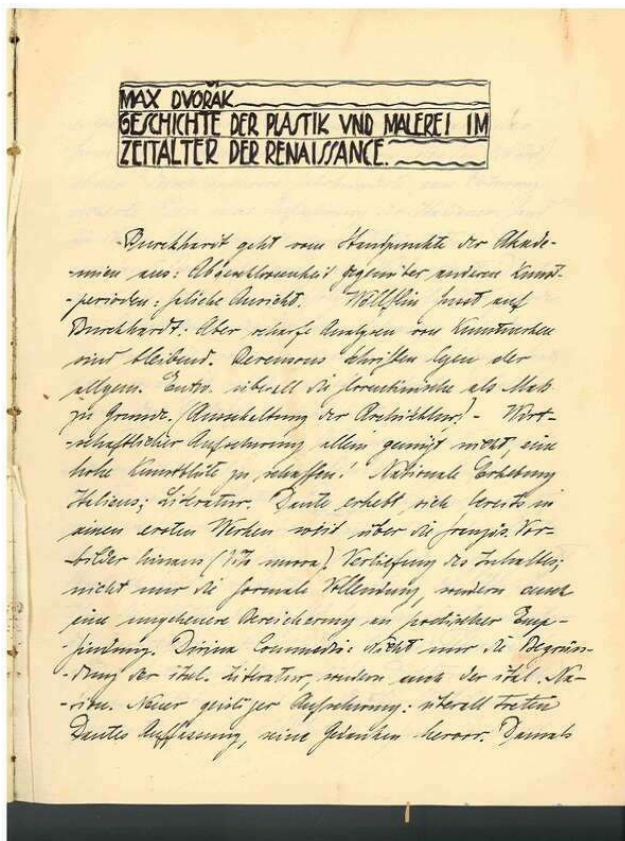 MAX DVOŘÁK
GESCHICHTE DER PLASTIK VND MALEREI IM
ZEITALTER DER RENAISSANCE.
Burckhardt geht vom Standpunkte der Akade-
-mien aus: Abgeschlossenheit gegenüber anderen Kunst-
-perioden: Ansicht. Wölfflin fusst auf
Burckhardt: Aber scharfe Analysen von Kunstwerken
sind bleibend. Berensons Schriften legen der
allgem. Entw. überall die florentinische als Maß
zu Grunde. (Ausschaltung der Architektur!) - Wirt-
-schaftlicher Aufschwung allein genügt nicht, eine
hohe Kunstblüte zu schaffen! Nationale Erhebung
Italiens; Literatur. Dante erhebt sich bereits in
seinen ersten Werken weit über die französ. Vor-
-bilder hinaus (Vita nuova). Vertiefung des Inhaltes;
nicht nur die formale Vollendung, sondern auch
eine ungeheuere Bereicherung an poetischer Emp-
-findung. Divina Commedia: Nicht nur die Begrün-
-dung der ital. Literatur, sondern auch der ital. Na-
-tion. Neuer geistiger Aufschwung: überall treten
Dantes Auffassung, seine Gedanken hervor. Damals